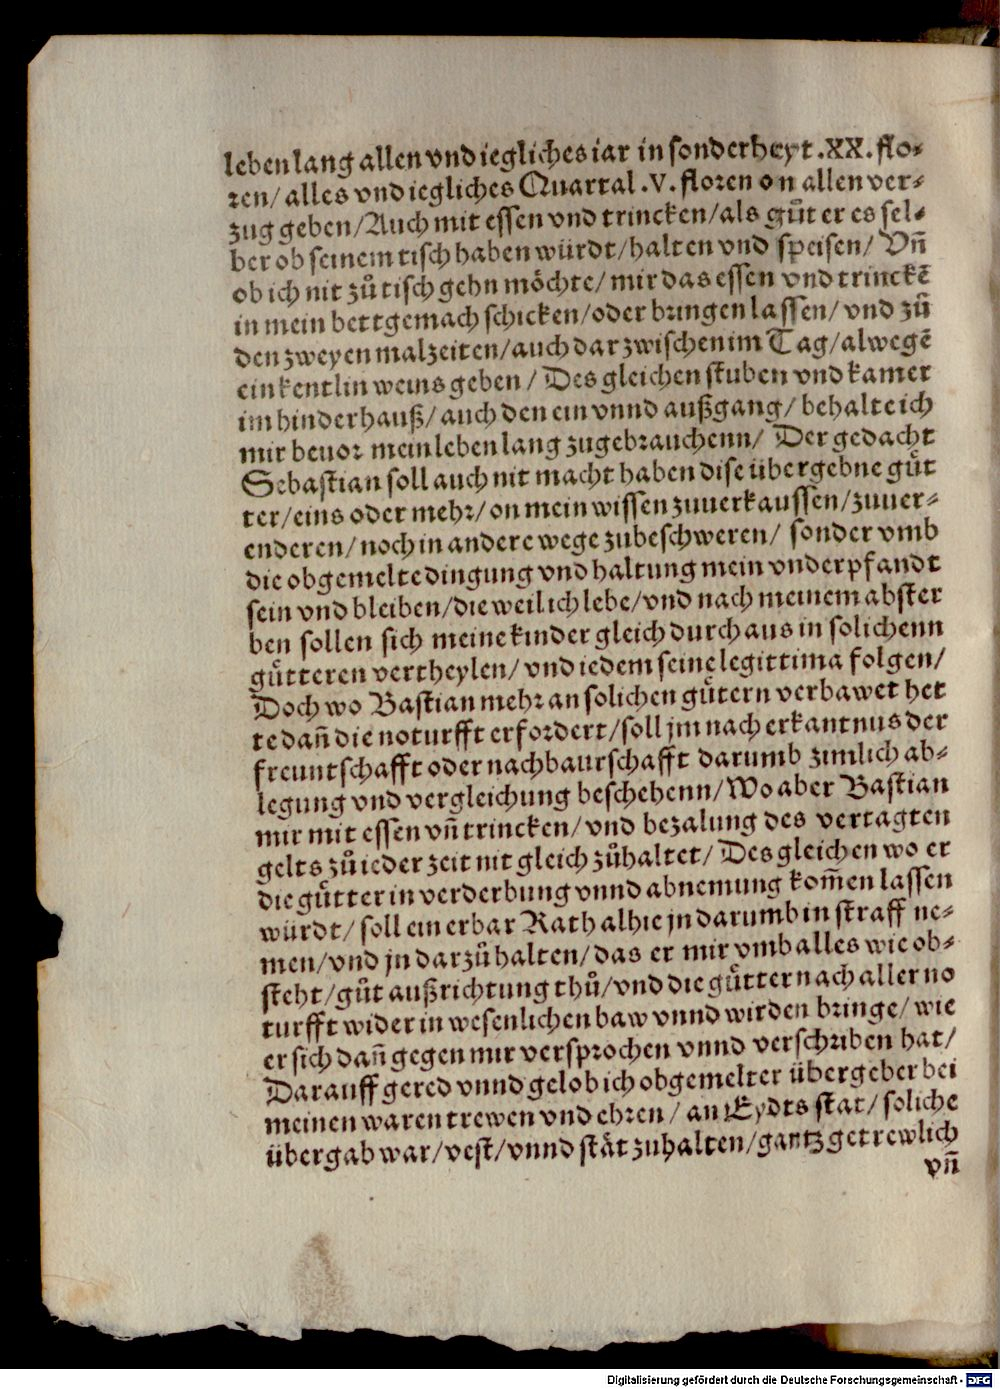 leben lang allen vnd iegliches iar in sonderheyt .XX. flo⸗
ren/ alles vnd iegliches Quartal .V. floren on allen ver⸗
zug geben/ Auch mit essen vnd trincken/ als gůt er es sel⸗
ber ob seinem tisch haben würdt/ halten vnd speisen/ Vñ
ob ich nit zů tisch gehn möchte/ mir das essen vnd trinckē
in mein bettgemach schicken/ oder bringen lassen/ vnd zů
den zweyen malzeiten/ auch darzwischen im Tag/ alwegē
ein kentlin weins geben/ Des gleichen stuben vnd kamer
im hinderhauß/ auch den ein vnnd außgang/ behalte ich
mir beuor mein leben lang zugebrauchenn/ Der gedacht
Sebastian soll auch nit macht haben dise übergebne gůt
ter/ eins oder mehr/ on mein wissen zuuerkaussen/ zuuer⸗
enderen/ noch in andere wege zubeschweren/ sonder vmb
die obgemelte dingung vnd haltung mein vnderpfandt
sein vnd bleiben/ die weil ich lebe/ vnd nach meinem abster
ben sollen sich meine kinder gleich durch aus in solichenn
gůtteren vertheylen/ vnd iedem seine legittima folgen/
Doch wo Bastian mehr an solichen gůtern verbawet het
te dañ die noturfft erfordert/ soll jm nach erkantnus der
freuntschafft oder nachbaurschafft darumb zimlich ab⸗
legung vnd vergleichung beschehenn/ Wo aber Bastian
mir mit essen vñ trincken/ vnd bezalung des vertagten
gelts zů ieder zeit nit gleich zůhaltet/ Des gleichen wo er
die gůtter in verderbung vnnd abnemung kom̃en lassen
würdt/ soll ein erbar Rath alhie jn darumb in straff ne⸗
men/ vnd jn darzů halten/ das er mir vmb alles wie ob⸗
steht/ gůt außrichtung thů/ vnd die gůtter nach aller no
turfft wider in wesenlichen baw vnnd wirden bringe/ wie
er sich dañ gegen mir versprochen vnnd verschriben hat/
Darauff gered vnnd gelob ich obgemelter übergeber bei
meinen waren trewen vnd ehren/ an Eydts stat/ soliche
übergab war/ vest/ vnnd stät zuhalten/ gantz getrewlich
vñ
Digitalisierung gefördert durch die Deutsche Forschungsgemeinschaft - DFG